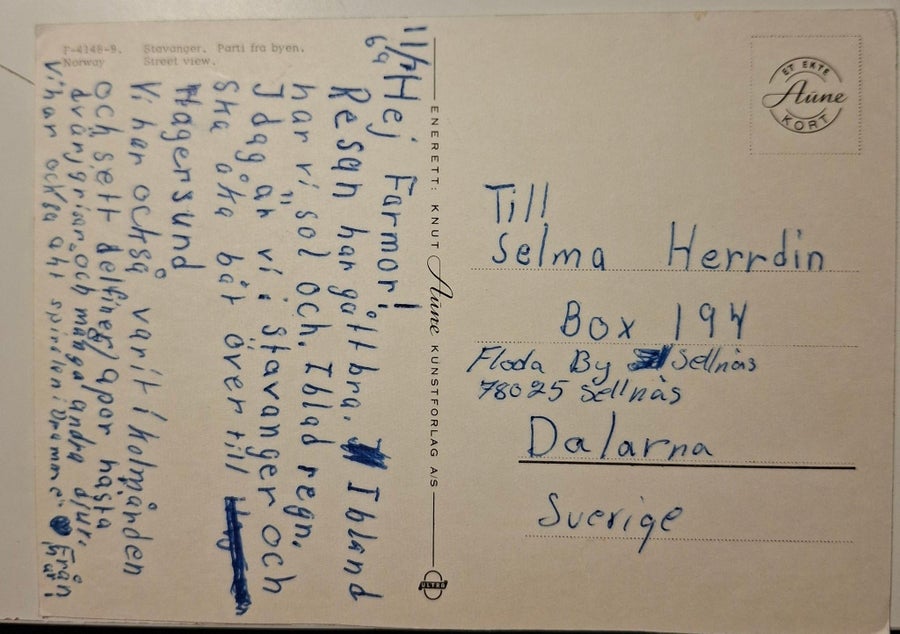 P-4148-9. Stavanger. Parti fra byen.
Norway Street view.
11/7
69
Hej Farmor!
Resan har gått bra. Ibland
har vi sol och. Iblad regn.
Idag är vi i Stavanger och
ska åka båt över till
Hagersund
Vi har också varit i kolmånden
och sett delfiner/apor hästa
dvärjgrisar och många andra djur.
Vi har också åht spiralen i Dramme
Från
ENERETT: KNUT Aune KUNSTFORLAG A/S
ULTRA
ET EKTE
Aune
KORT
Till
Selma Herrdin
Box 194
Floda By Sellnäs
78025 Sellnäs
Dalarna
Sverige